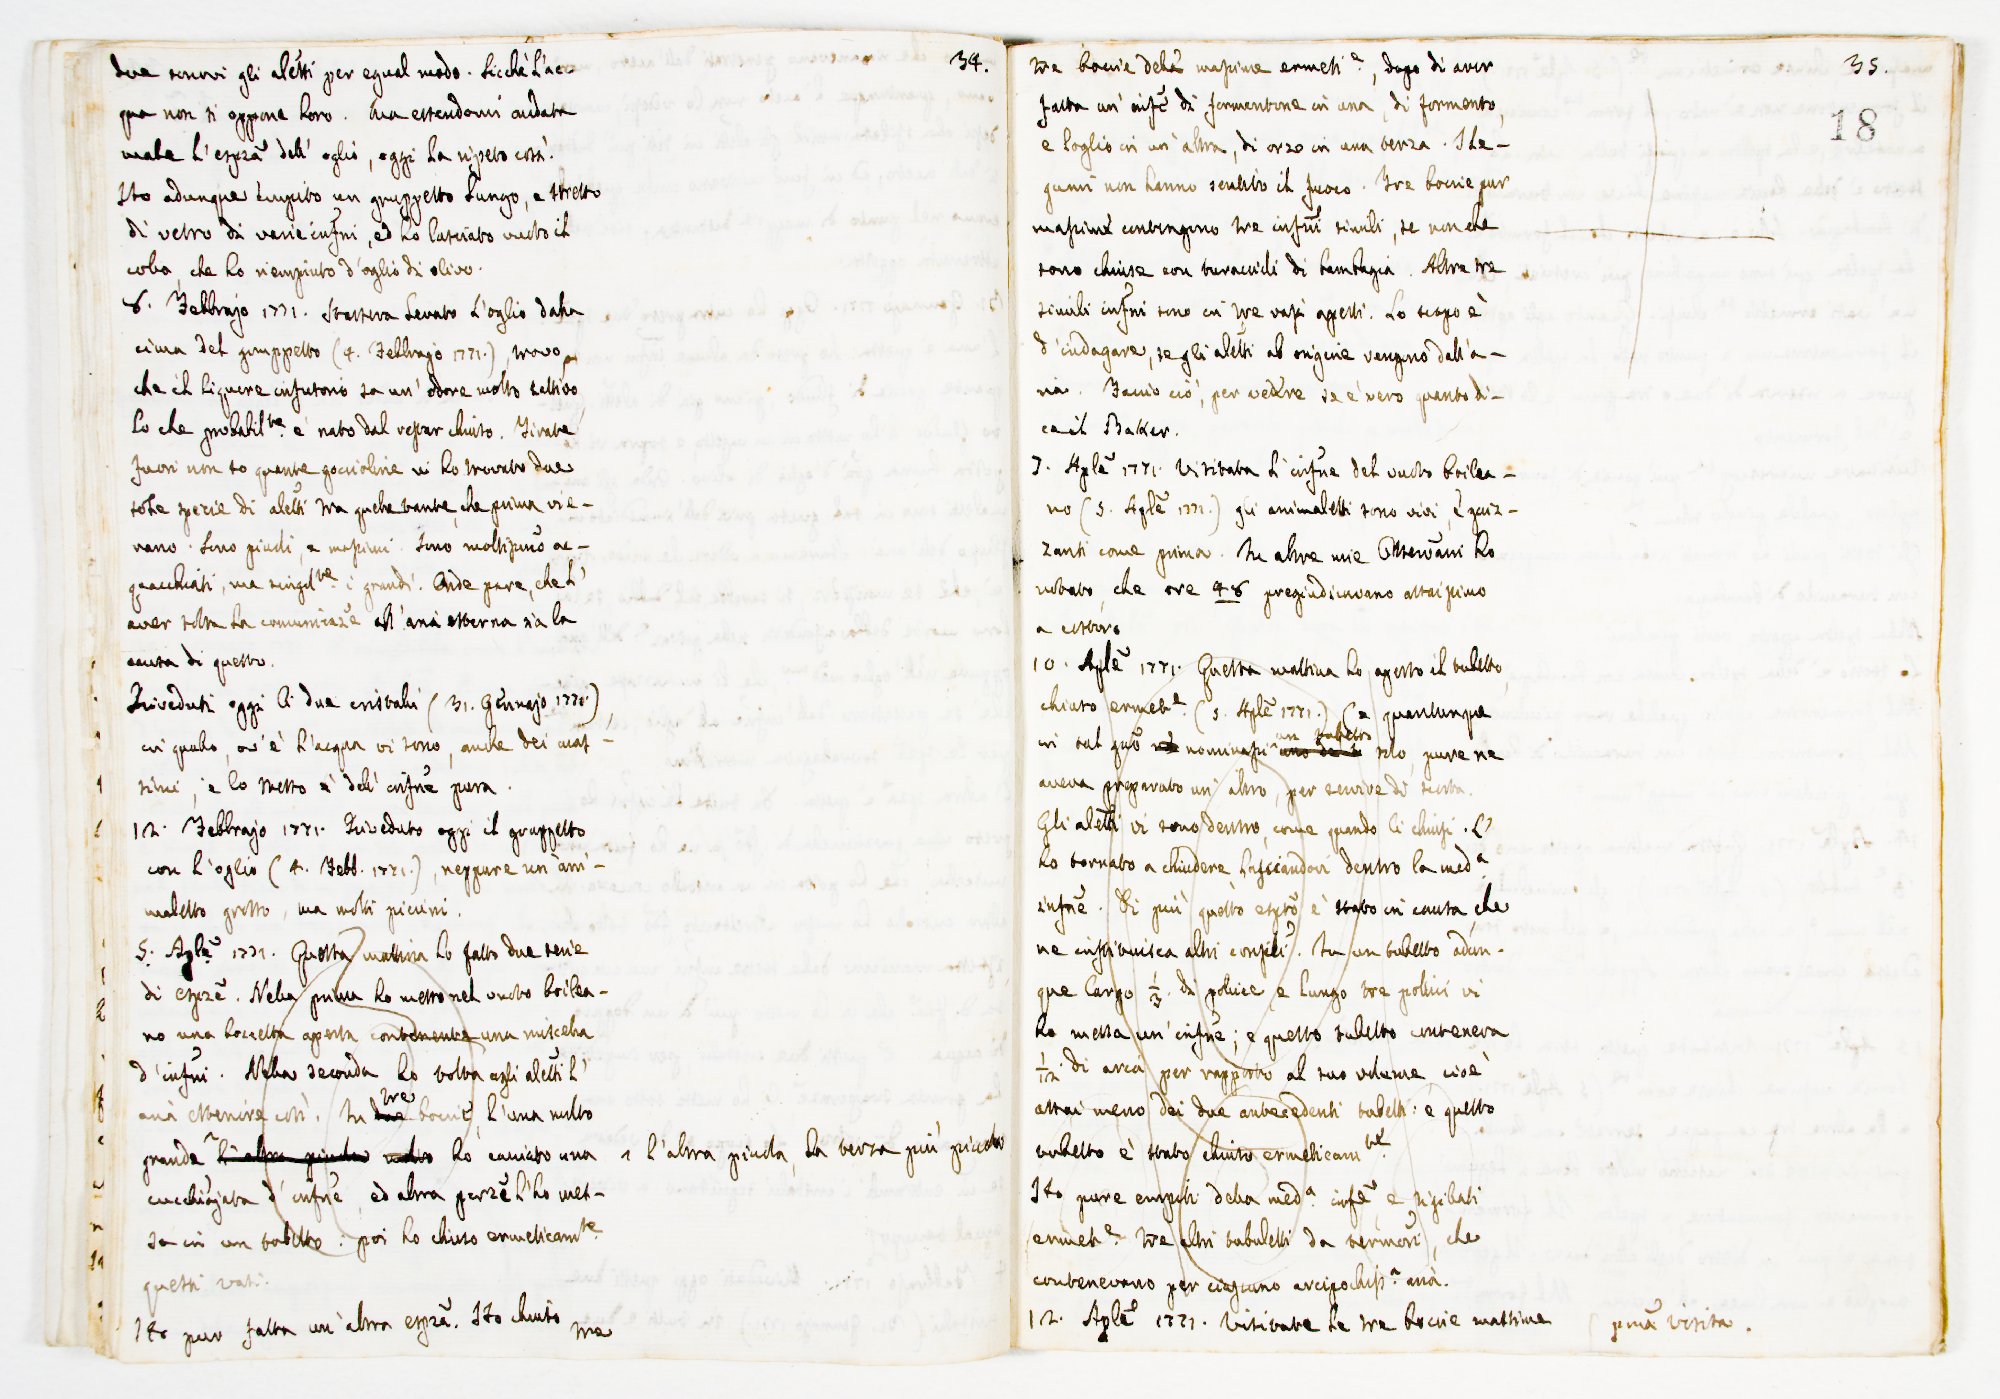 34.
dove sonovi gli aletti per egual modo. Sicchè l'ac-
qua non si oppone loro. Ma essendomi andata
male l'esprza dell'oglio, oggi la ripeto così.
Ho adunque empito un gruppetto lungo, e stretto
di vetro di varie infni, ed ho lasciato vuoto il
collo, che ho riempiuto d'oglio di olivo.
8. Febbrajo 1771. Stassera levato l'oglio dalla
cima del gruppetto (4. Febbrajo 1771.), trovo,
che il liquore infusorio sa un'odore molto cattivo,
lo che probabilte è nato dal restar chiuso. Tirate
fuori non so quante goccioline vi ho trovato due
sole specie di aletti tra quelle tante, che prima vie-
rano. Sono piccoli, e massimi. Sono moltissimo ac-
quacchiati, ma singolte i grandi. Onde pare, che l'
aver tolta la comunicaze all'aria esterna sia la
causa di questo.
Riveduti oggi li due cristalli (31. Gennajo 1771.),
in quello, ov'è l'acqua vi sono, anche dei mas-
simi, e lo stesso è dell'infne pura.
12. Febbrajo 1771. Riveduto oggi il gruppetto
con l'oglio (4. Febb. 1771.), neppure un'ani-
maletto grosso, ma molti piccini.
5. Aple 1771. Questa mattina ho fatto due serie
di esprze. Nella prima ho messo nel vuoto boilea-
no una boccetta aperta contenente una miscella
d'infni. Nella seconda ho tolta agli aletti l'
aria esteriore così. In due tre boccie, l'una molto
grande l'altra piccola molto ho cacciato una ^ l'altra piccola, la terza più piccola
cucchiajata d'infne, ed altra porze l'ho mes-
sa in un tubetto: poi ho chiuso ermeticamte
questi vasi.
Ho pur fatta un'altra esprza. Ho chiuso
tre
35.
18
tre boccie della massime ermete, dopo di aver
fatta un'infne di formentone in una, di formento,
e loglio in un'altra, di orzo in una terza. I le-
gumi non hanno sentito il fuoco. Tre boccie pur
massime contengono tre infni simili, se non che
sono chiuse con turaccioli di bambagia. Altre tre
simili infni sono in tre vasi aperti. Lo scopo è
d'indagare, se gli aletti ab origine vengono dall'a-
ria. Faccio ciò, per vedere se è vero quanto di-
ce il Baker.
7. Aple 1771. Visitata l'infne del vuoto boilea-
no (5. Aple 1771.) gli animaletti sono vivi, e guiz-
zanti come prima. In altre mie Osservani ho
notato, che ore 48 pregiudicavano assaissimo
a costoro.
10. Aple 1771. Questa mattina ho aperto il tubetto
chiuso ermete. (5. Aple 1771.) (e quantunque
in tal gno ne nominassi uno de li un tubetto solo, pure ne
aveva preparato un'altro, per servire di scorta.
Gli aletti vi sono dentro, come quando li chiusi. L'
ho tornato a chiudere lasciandovi dentro la meda
infne. Di più questo espto è stato in causa, che
ne instituisca altri consili. In un tubetto adun-
que largo 1/3. di pollice e lungo tre pollici vi
ho messa un'infne; e questo tubetto conteneva
1/12. di aria per rapporto al suo volume, cioè
assai meno dei due antecedenti tubetti: e questo
tubetto è stato chiuso ermeticamte.
Ho pure empiti della meda infne, e sigillati
ermete tre altri tubuletti da termomri, che
contenevano per ciascuno arcipochissa aria.
12. Aple 1771. Visitate le tre boccie massime ( prima visita.